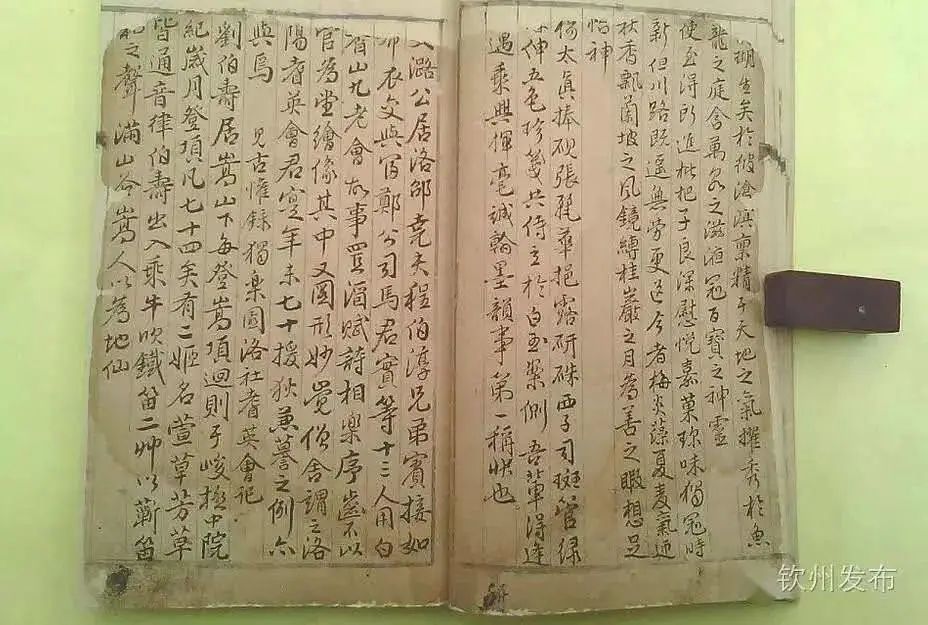 湖生矣於彼滄溟禀精乎天地之氣擢秀於魚
龍之庭含萬象之滋液冠百寶之神靈
使至得所進枇杷子良深慰悅嘉菓珍味獨冠時
新但川路既遥無勞更送今者梅炎藻夏麦氣迎
秋香飄蘭坡之風鏡縛桂巖之月為善之暇想足
怡神
太真捧硯張麗華挹露研硃西子司斑管綠
五色珍幾共侍立於白玉案側吾輩得逢
遇乘興揮毫誠翰墨韻事第一稱快也
潞公居洛邵堯夫程伯淳兄弟賓接如
布衣交與富鄭公司馬君實等十三人用白
香山九老會故事置酒賦詩相樂序齒不以
官為堂繪像其中又圖形妙覺僧舍謂之洛
陽耆英會君實年未七十援狄兼謩之例亦
與焉 見古懽錄獨樂園洛社耆英會記
劉伯壽居嵩山下每登嵩項迴則于峻極中院
紀歲月登項凡七十四矣有二姬名萱草芳草
皆通音律伯壽出入乘牛吹鐵笛二艸以蘄笛
和之聲滿山谷嵩人以為地仙
钦州发布